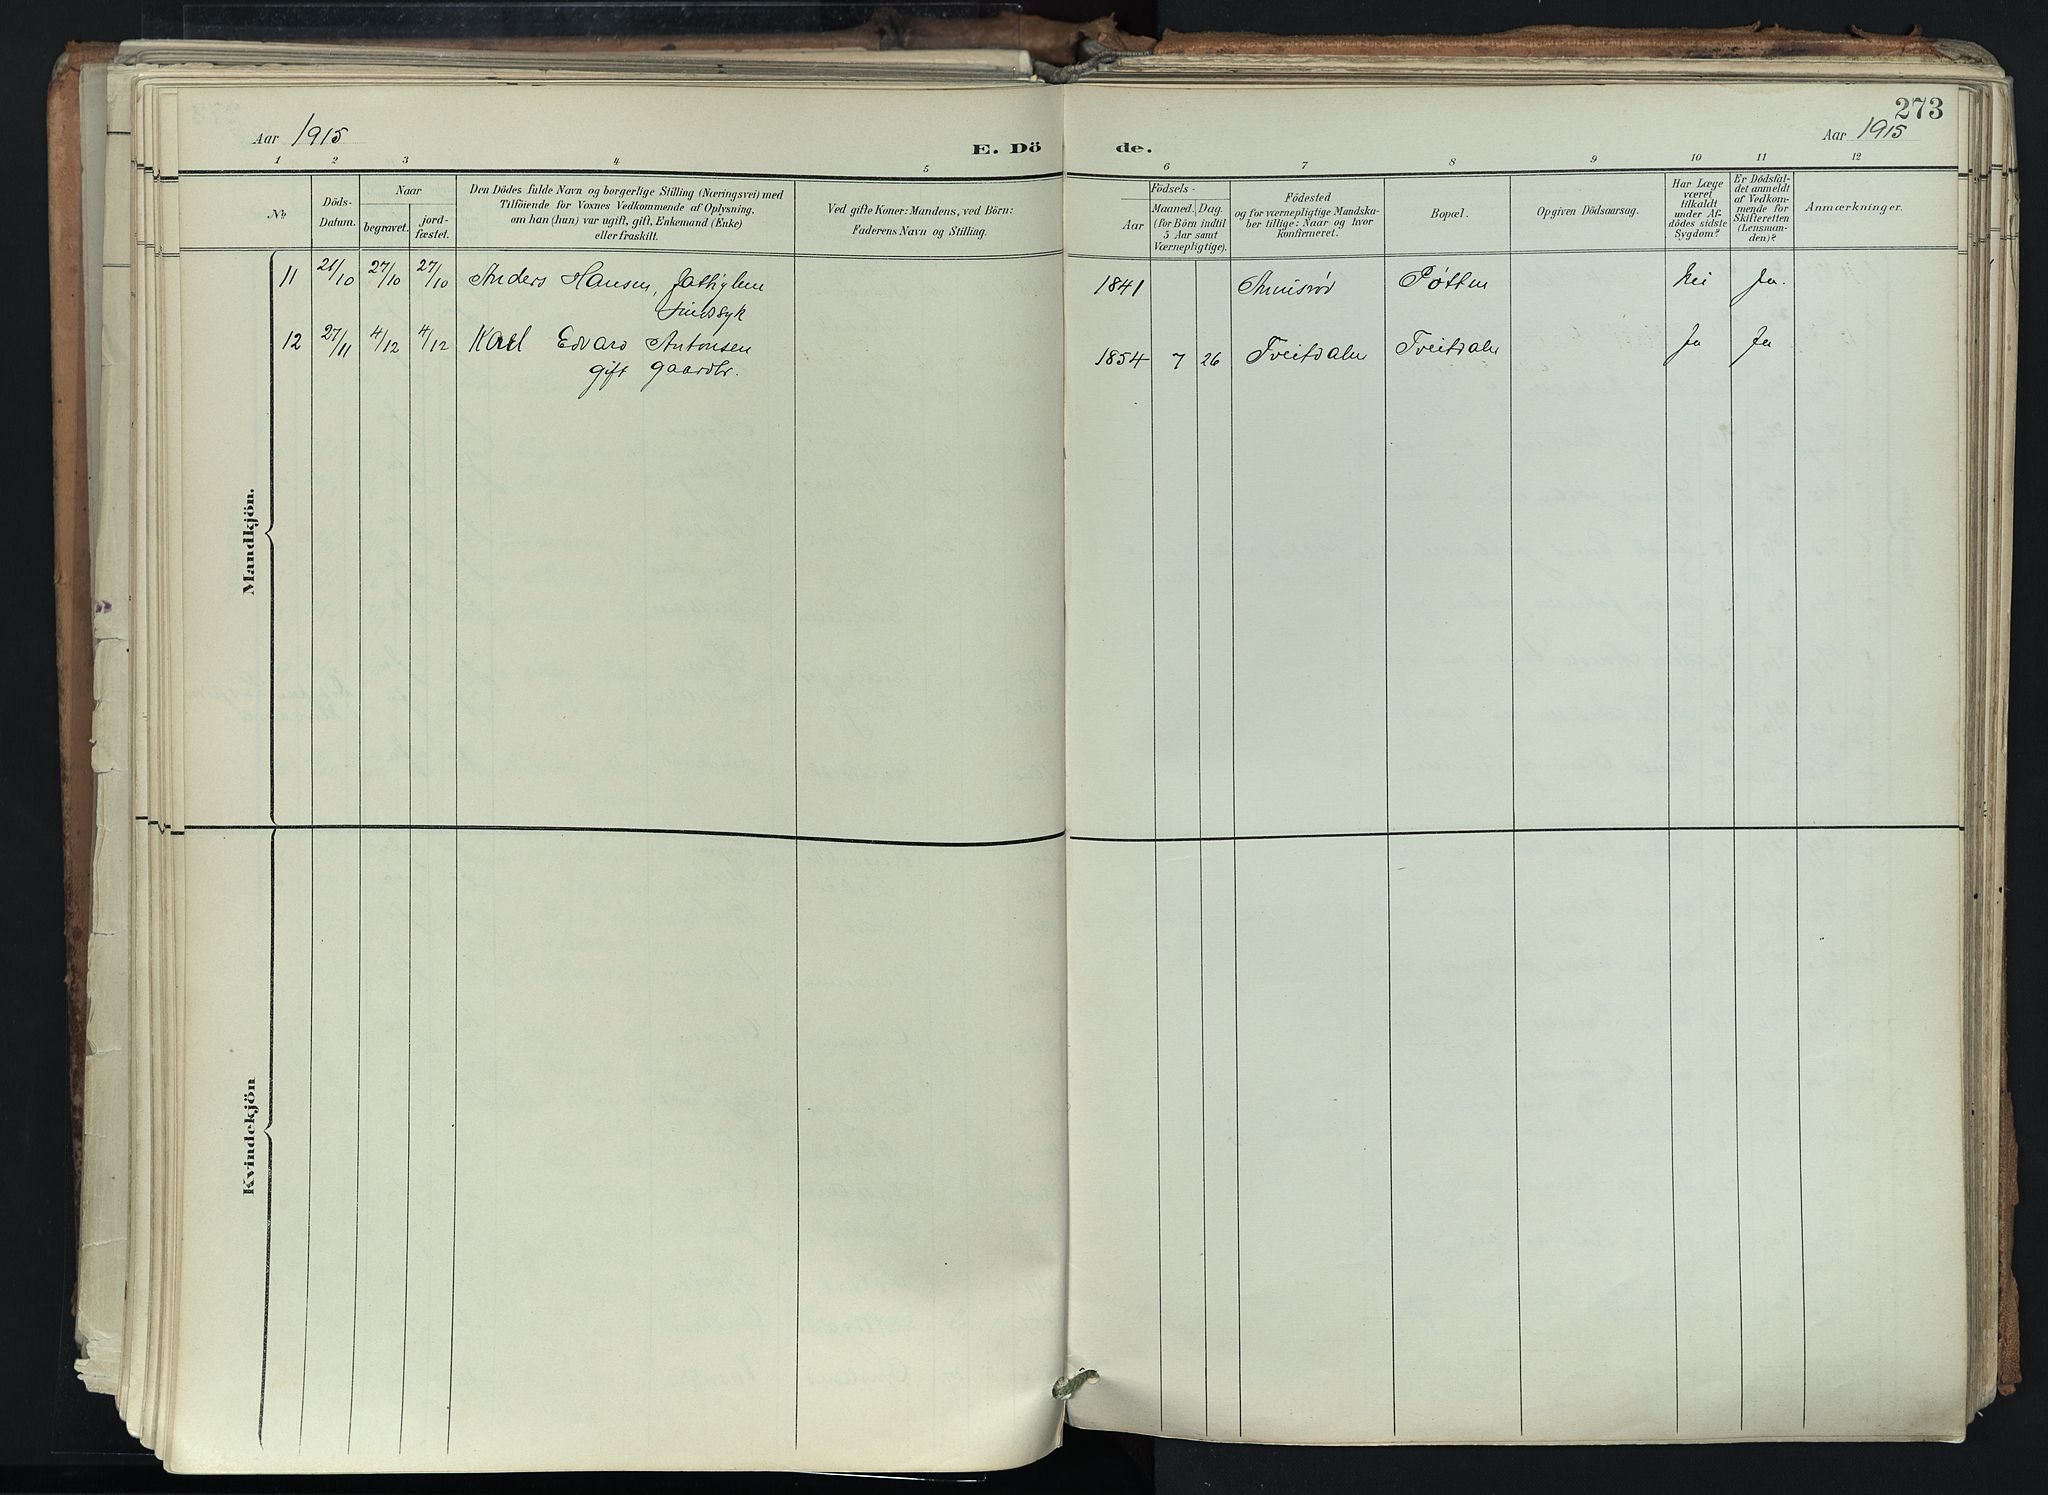 273
Aar 1915
E. Dö
de.
Aar 1915
1 2 3 4 5
6 7 8 9 10 11 12
No
Döds-
Datum.
Naar
begravet.
jord-
fæstet.
Den Dödes fulde Navn og borgerlige Stilling (Næringsvei) med
Tilföiende for Voxnes Vedkommende af Oplysning,
om han (hun) var ugift, gift, Enkemand (Enke)
eller fraskilt.
Ved gifte Koner: Mandens, ved Börn:
Faderens Navn og Stilling.
Födsels-
Aar
Maaned.
Dag.
(for Börn indtil
5 Aar samt
Værnepligtige).
Födested
og for værnepligtige Mandska-
ber tillige: Naar og hvor
konfirmeret.
Bopæl.
Opgiven Dödsaarsag.
Har Læge
været
tilkaldt
under Af-
dödes sidste
Sygdom?
Er Dödsfal-
det anmeldt
af Vedkom-
mende for
Skifteretten
(Lensman-
den)?
Anmærkninger.
Mandkjön.
11 21/10 27/10 27/10 Anders Hansen,
Sindssyk
1841 Nei Ja.
12 27/11 4/12 4/12 Karl Edvard Antonsen
gift gaardbr.
1854 7 26 Tveitdalen Tveitdalen Ja Ja
Kvindekjön